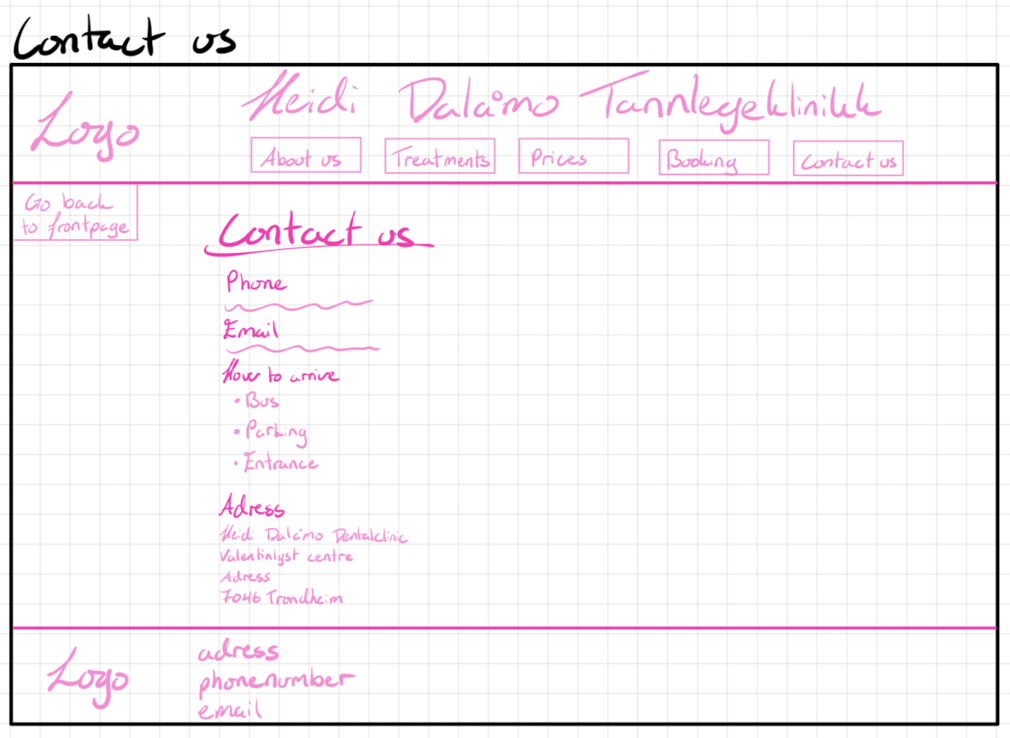 Contact us
Logo
Heidi Dalåmo Tannlegeklinikk
About us Treatments Prices Booking Contact us
Go back
to frontpage
Contact us
Phone
Email
How to arrive
• Bus
• Parking
• Entrance
Adress
Heidi Dalåmo Dentalclinic
Valentinlyst centre
Adress
7046 Trondheim
Logo
adress
phonenumber
email